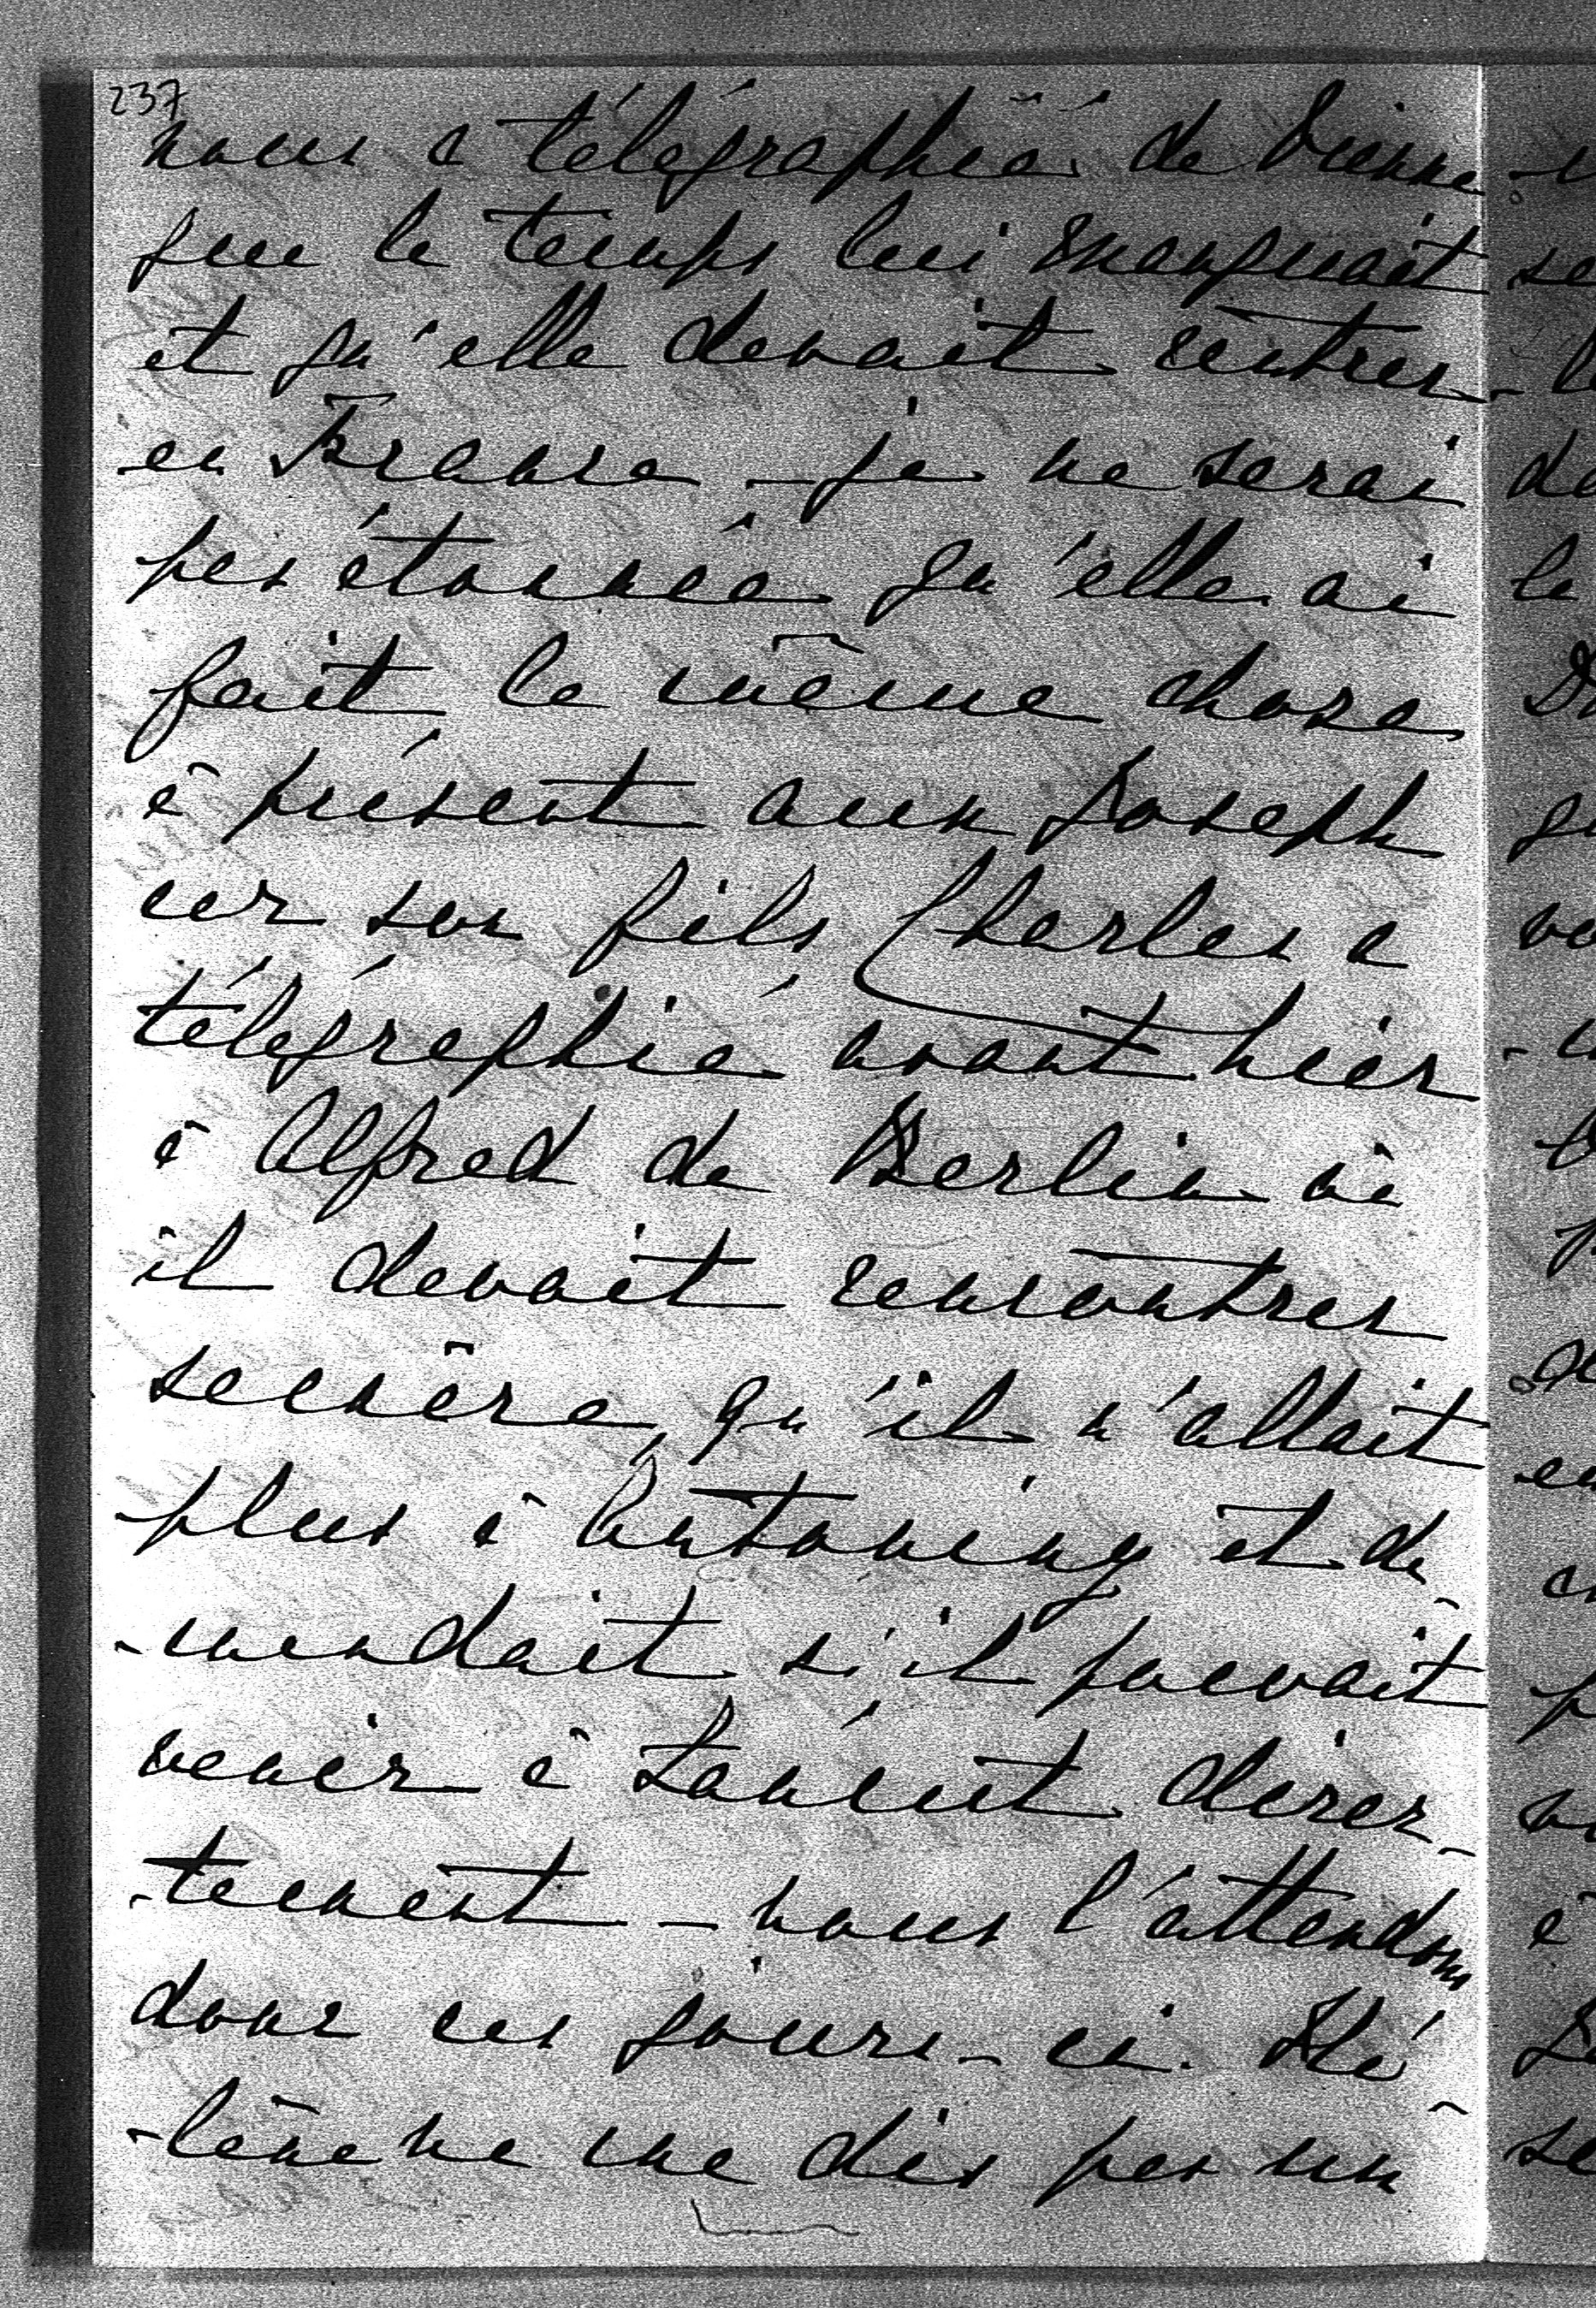 237
nous a télégraphié de Vienne
que le temps lui manquait
et qu'elle devait rentrer
en France - je ne serai
pas étonnée qu'elle ai
fait la même chose
à présent avec Joseph
car son fils Charles a
télégraphié avant hier
à Alfred de Berlin où
il devait rencontrer
sa mère, qu'il n'allait
plus à Antoniny et de-
-mandait s'il pouvait
venir à Łańcut direc-
-tement - nous l'attendons
donc ces jours-ci. Hé-
-lène ne me dis pas un